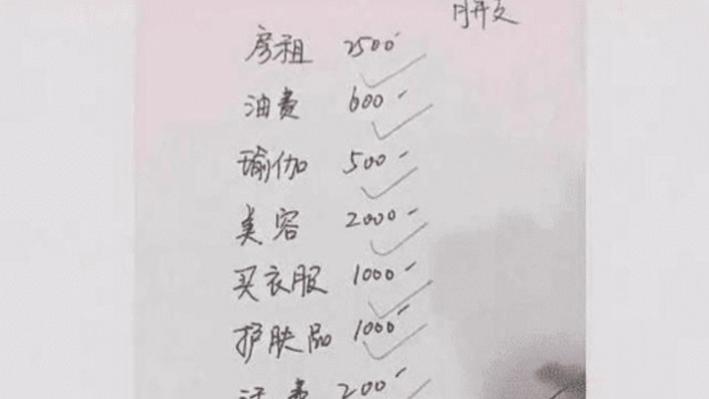 月开支
房租 2500
油费 600-
瑜伽 500-
美容 2000-
买衣服 1000-
护肤品 1000-
费 200-